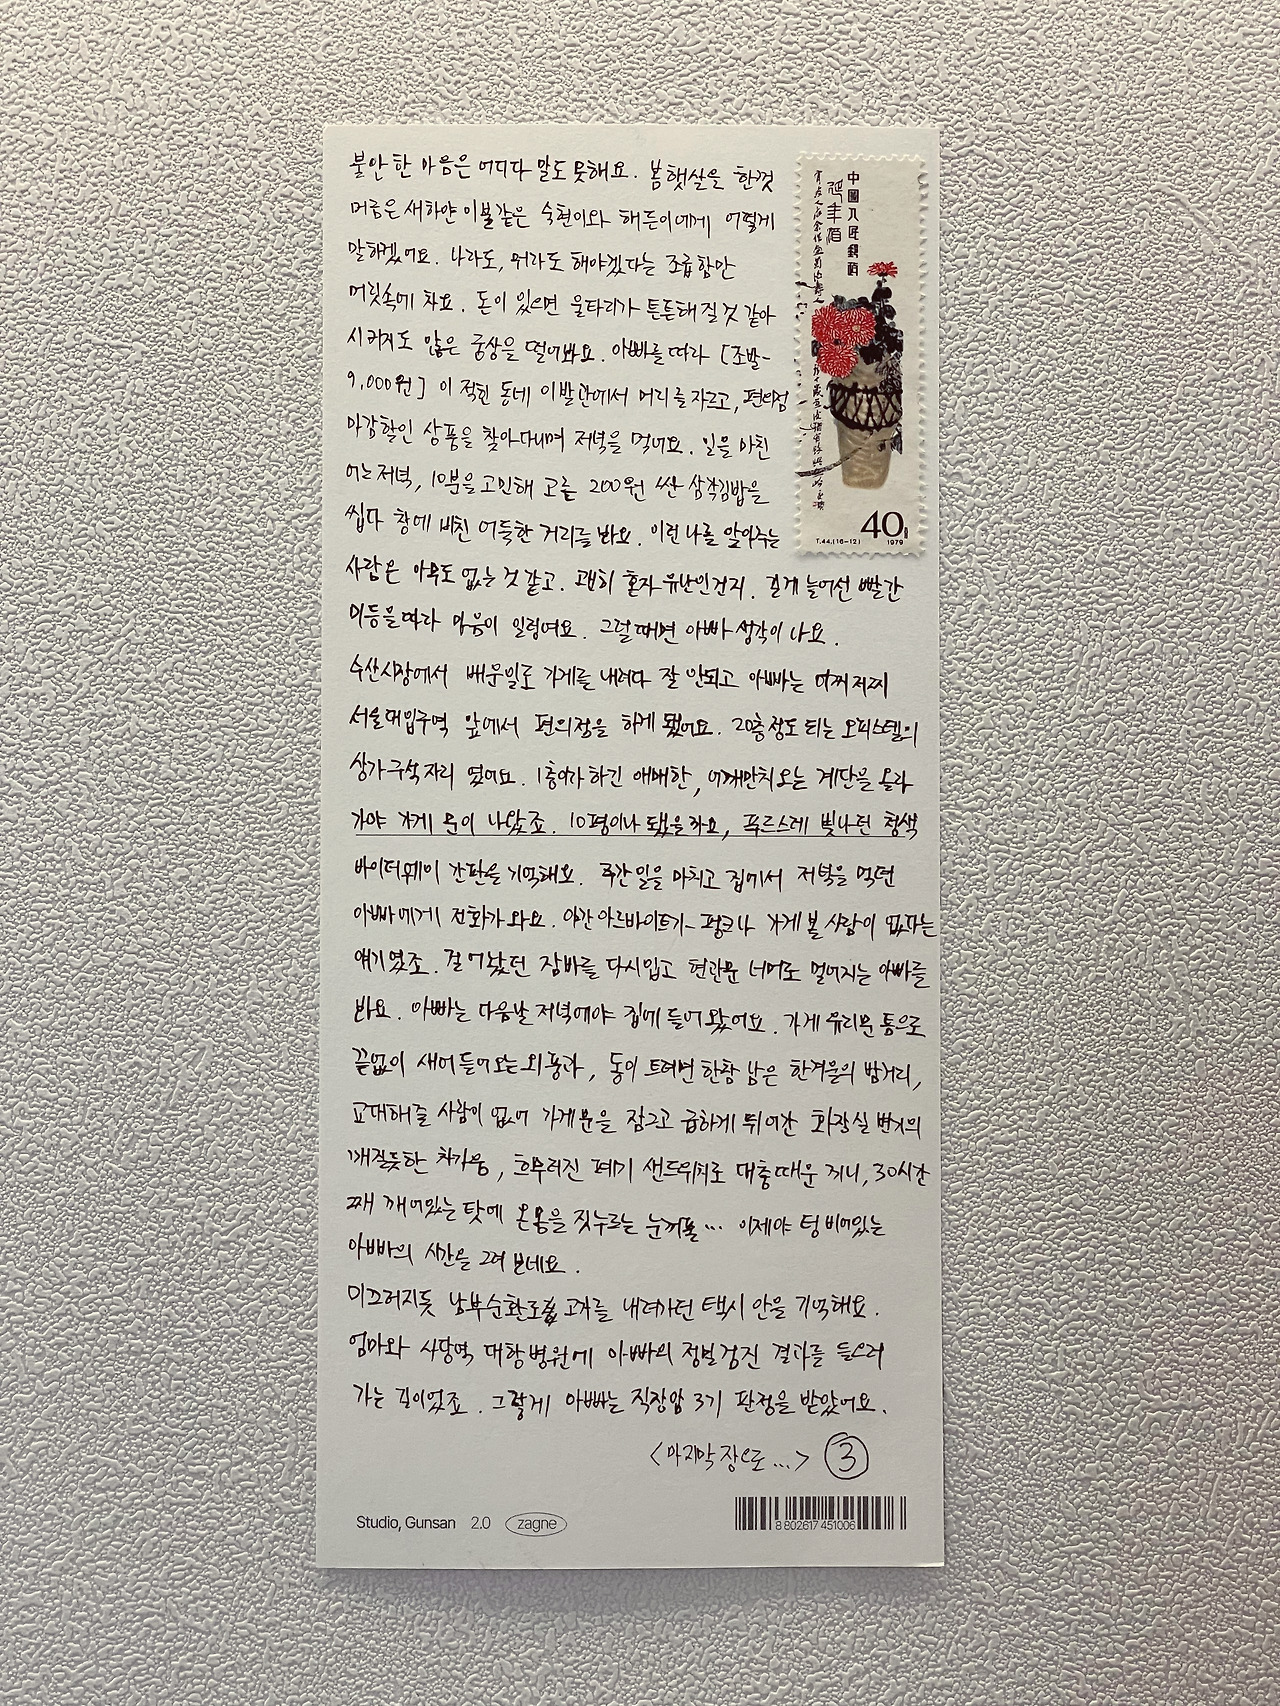 불안한 마음은 어디다 말도 못해요. 봄햇살을 한껏
머금은 새하얀 이불같은 숙현이와 해든이에게 어떻게
말하겠어요. 나라도, 뭐라도 해야겠다는 조급함만
머릿속에 차요. 돈이 있으면 울타리가 튼튼해질 것 같아
시키지도 않은 궁상을 떨어봐요. 아빠를 따라 [조발-
9,000원] 이 적힌 동네 이발관에서 머리를 자르고, 편의점
마감할인 상품을 찾아다니며 저녁을 먹어요. 일을 마친
어느 저녁, 10분을 고민해 고른 200원 싼 삼각김밥을
씹다 창에 비친 어둑한 거리를 봐요. 이런 나를 알아주는
사람은 아무도 없는 것 같고. 괜히 혼자 유난인건지. 길게 늘어선 빨간
미등을 따라 마음이 일렁여요. 그럴때면 아빠 생각이 나요.
수산시장에서 배운일로 가게를 내려다 잘 안되고 아빠는 어찌저찌
서울대입구역 앞에서 편의점을 하게 됐어요. 20층정도 되는 오피스텔의
상가 구석자리 였어요. 1층이라 하긴 애매한, 어깨만치 오는 계단을 올라
가야 가게 문이 나왔죠. 10평이나 됐을라요, 푸르스레 빛나던 청색
바이더웨이 간판을 기억해요. 주간일을 마치고 집에서 저녁을 먹던
아빠에게 전화가 와요. 야간 아르바이트가 펑크나 가게 볼 사람이 없다는
얘기였죠. 걸어놨던 잠바를 다시입고 현관문 너머로 멀어지는 아빠를
봐요. 아빠는 다음날 저녁에야 집에 들어왔어요. 가게 유리문 틈으로
끝없이 새어들어오는 외풍과, 동이 트려면 한참 남은 한겨울의 밤거리,
교대해줄 사람이 없어 가게문을 잠그고 급하게 뛰어간 화장실 변기의
깨질듯한 차가움, 흐무러진 폐기 샌드위치로 대충때운 끼니, 30시간
째 깨어있는 탓에 온몸을 짓누르는 눈꺼풀... 이제야 텅 비어있는
아빠의 시간을 그려 보네요.
미끄러지듯 남부순환로 고가를 내려가던 택시 안을 기억해요.
엄마와 사당역 대항병원에 아빠의 정밀검진 결과를 들으러
가는 길이었죠. 그렇게 아빠는 직장암 3기 판정을 받았어요.
<마지막 장으로...> ③
中國人民郵政
40分
T.44.(16-12) 1979
Studio, Gunsan 2.0 zagne
8 802617 451006